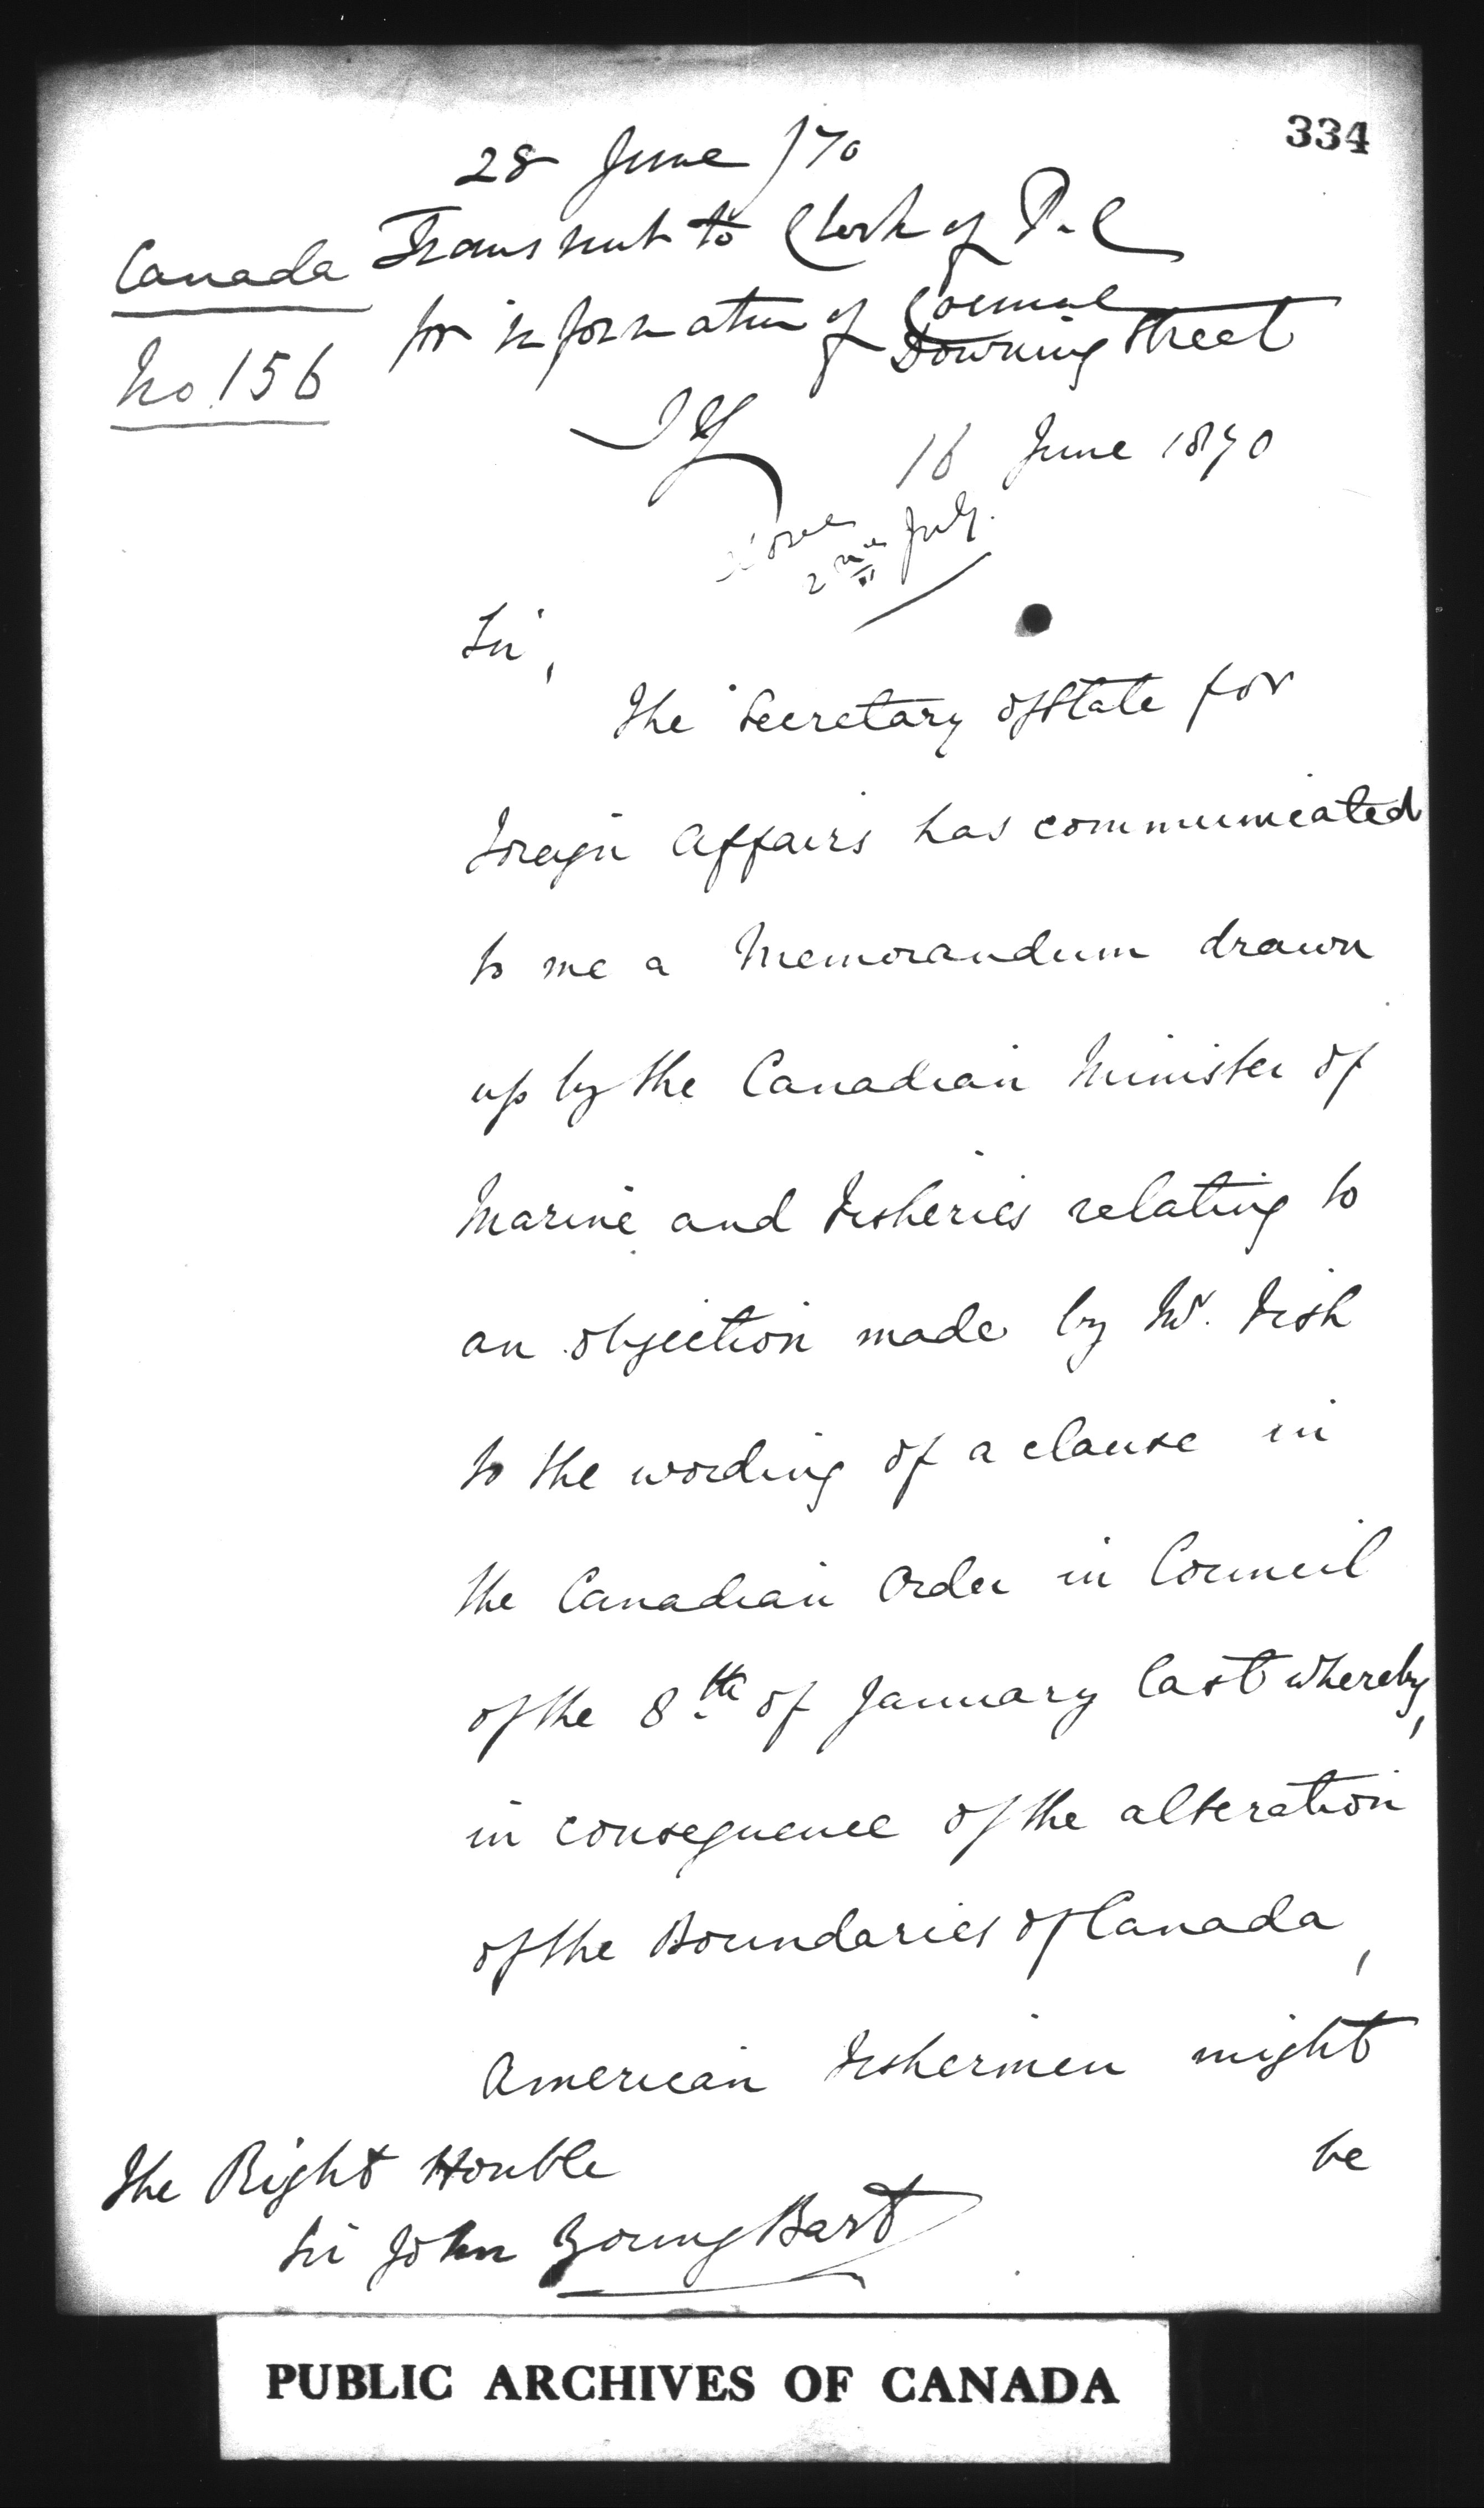 334
28 June /70
Transmit to Clerk of P.C
for information of Council
JY
Done
2nd July.
Canada
No. 156
Downing Street
16 June 1870
Sir,
The Secretary of State for
Foreign Affairs has communicated
to me a Memorandum drawn
up by the Canadian Minister of
Marine and Fisheries relating to
an objection made by Mr. Fish
to the wording of a clause in
the Canadian Order in Council
of the 8th of January last whereby,
in consequence of the alteration
of the Boundaries of Canada,
American Fishermen might
be
The Right Honble
Sir John Young Bart
PUBLIC ARCHIVES OF CANADA